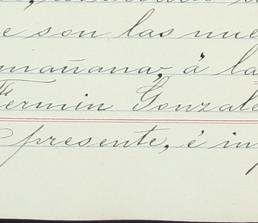 e son las nue
mañana, á la
Fermin Gonzale
presente, é in